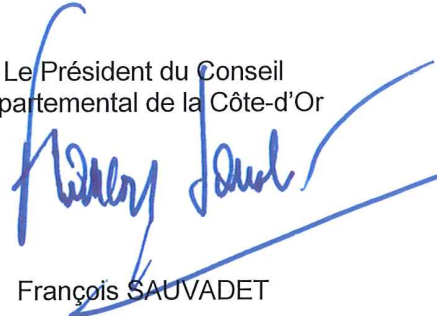 Le Président du Conseil
partemental de la Côte-d'Or
François SAUVADET